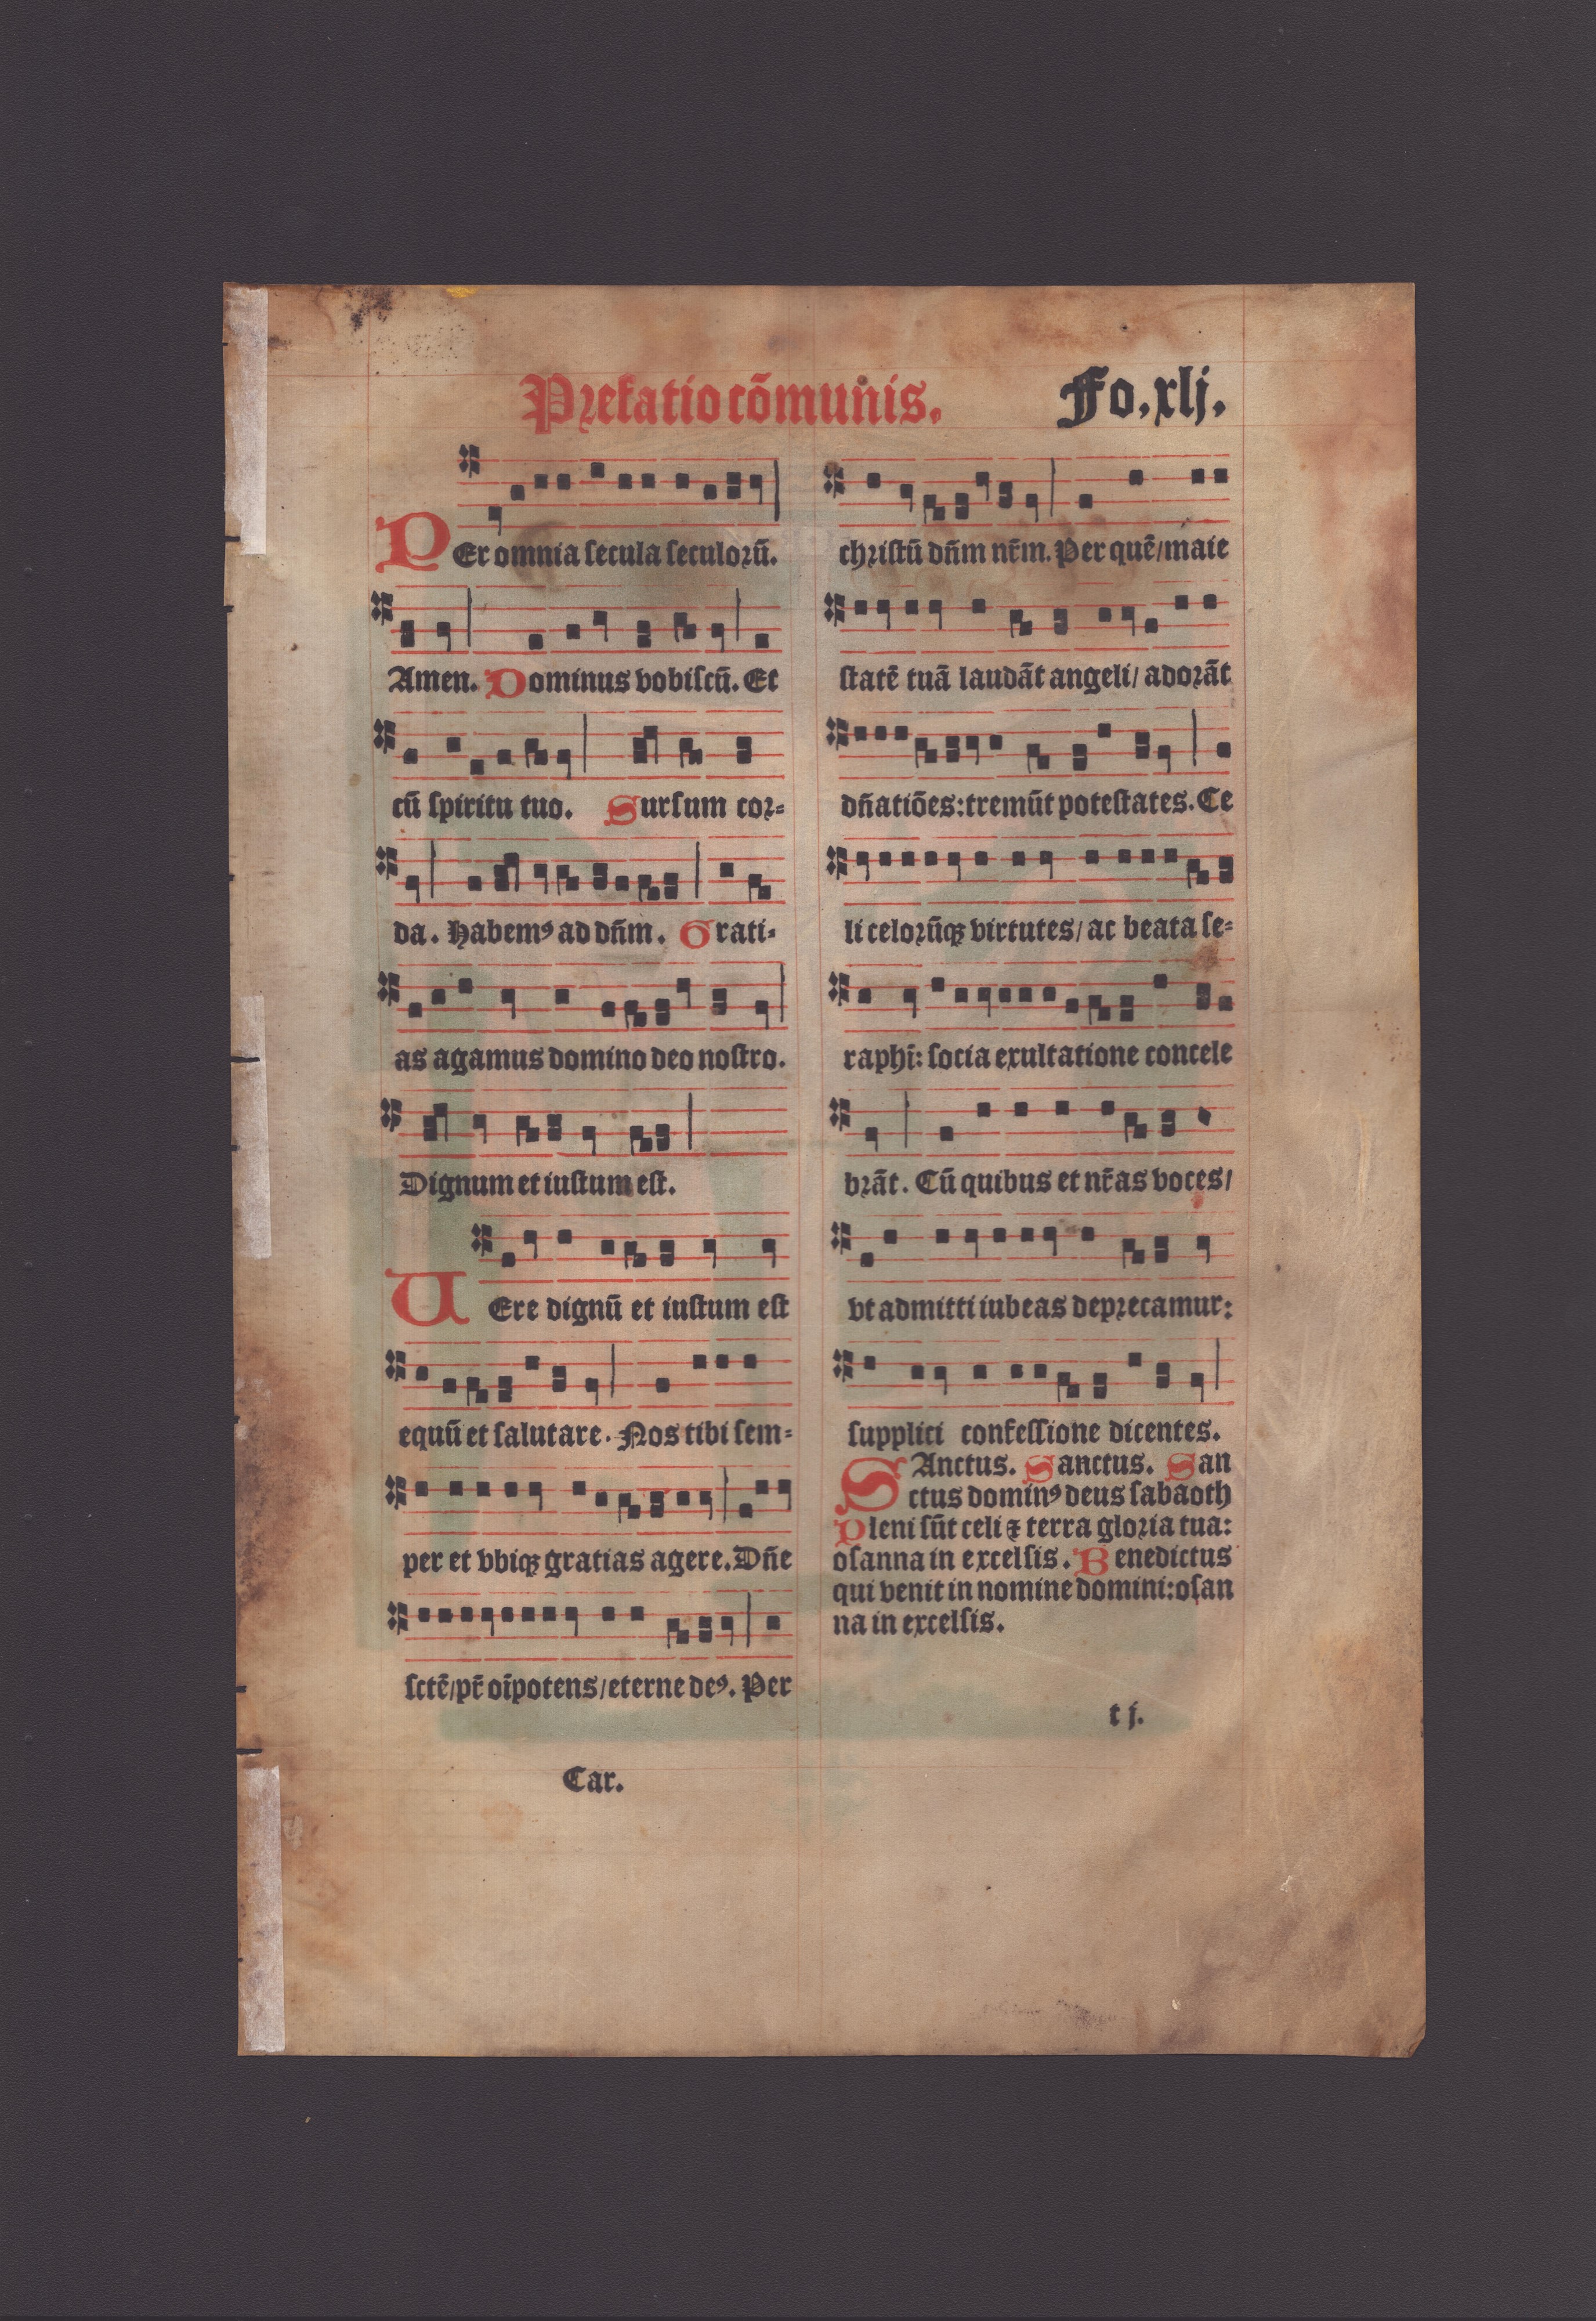 Prefatio cõmunis.
Fo. xlj.
PEr omnia secula seculorũ.
Amen. Dominus vobiscũ. Et
cũ spiritu tuo. Sursum cor-
da. Habemꝰ ad dñm. Grati-
as agamus domino deo nostro.
Dignum et iustum est.
UEre dignũ et iustum est
equũ et salutare. Nos tibi sem-
per et vbiqꝫ gratias agere. Dñe
sctẽ/pr̃ oĩpotens/eterne deꝰ. Per
christũ dñm nr̃m. Per quẽ/maie
statẽ tuã laudãt angeli/ adorãt
dñatiões: tremũt potestates. Ce
li celorũqꝫ virtutes/ ac beata se-
raphĩ: socia exultatione concele
brãt. Cũ quibus et nr̃as voces/
vt admitti iubeas deprecamur:
supplici confessione dicentes.
SAnctus. Sanctus. San
ctus dominꝰ deus sabaoth
Pleni sũt celi ⁊ terra gloria tua:
osanna in excelsis. Benedictus
qui venit in nomine domini: osan
na in excelsis.
t j.
Car.